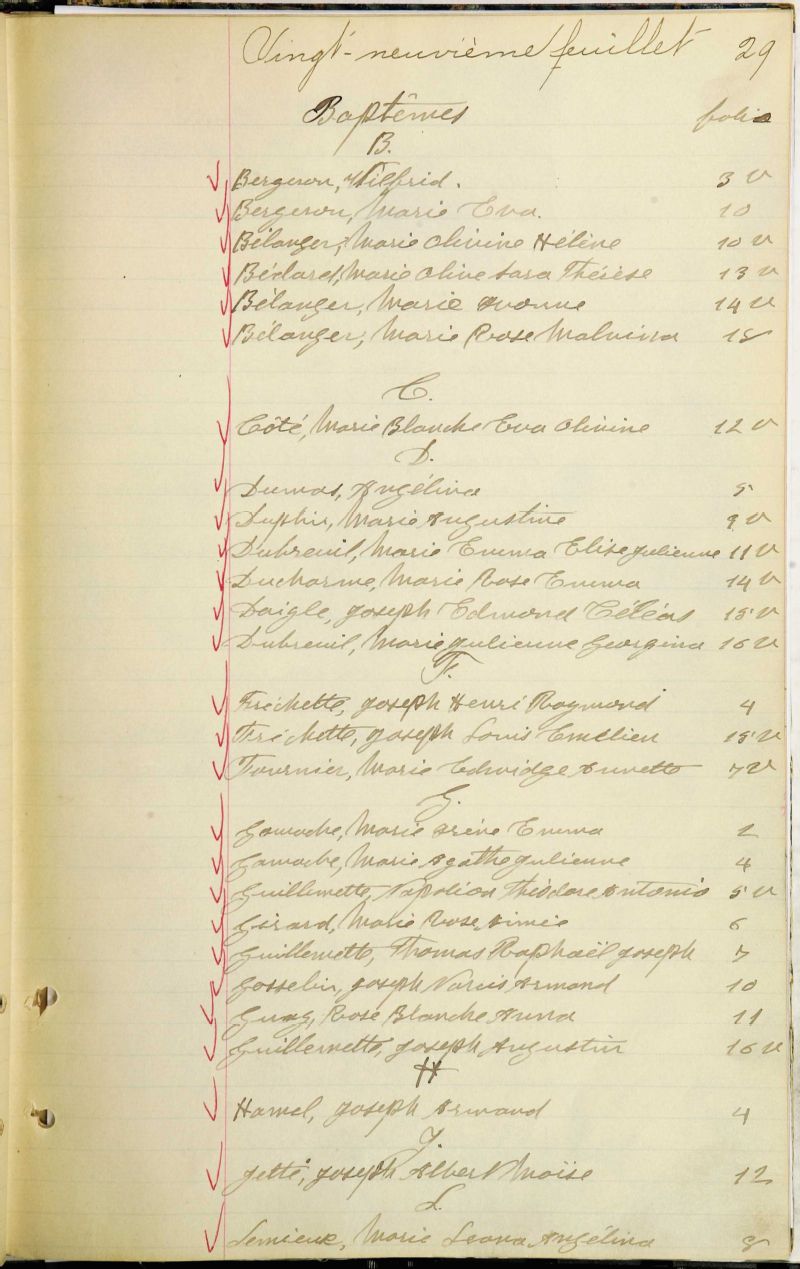 Vingt-neuvième feuillet 29
Baptêmes folio
B.
Bergeron, Wilfrid. 3 v
Bergeron, Marie Eva. 10
Bélanger, Marie Olivine Hélène 10 v
Bédard, Marie Olive Sara Thérèse 13 v
Bélanger, Marie Yvonne 14 v
Bélanger, Marie Rose Malvina 18
C.
Côté, Marie Blanche Eva Olivine 12 v
D.
Dumas, Angélina 5
Dupuis, Marie Augustine 9 v
Dubreuil, Marie Emma Elise Julienne 11 v
Ducharme, Marie Rose Emma 14 v
Daigle, Joseph Edmond Céléas 15 v
Dubreuil, Marie Julienne Georgina 16 v
F.
Fréchette, Joseph Henri Raymond 4
Fréchette, Joseph Louis Emélien 15 v
Fournier, Marie Edwidge Annette 7 v
G.
Gamache, Marie Irène Emma 2
Gamache, Marie Agathe Julienne 4
Guillemette, Napoléon Théodore Antonio 5 v
Girard, Marie Rose Aimée 6
Guillemette, Thomas Raphaël Joseph 7
Gosselin, Joseph Narcis Armand 10
Guay, Rose Blanche Anna 11
Guillemette, Joseph Augustin 16 v
H
Hamel, Joseph Armand 4
J.
Jetté, Joseph Albert Moïse 12
L.
Lemieux, Marie Leona Angélina 8